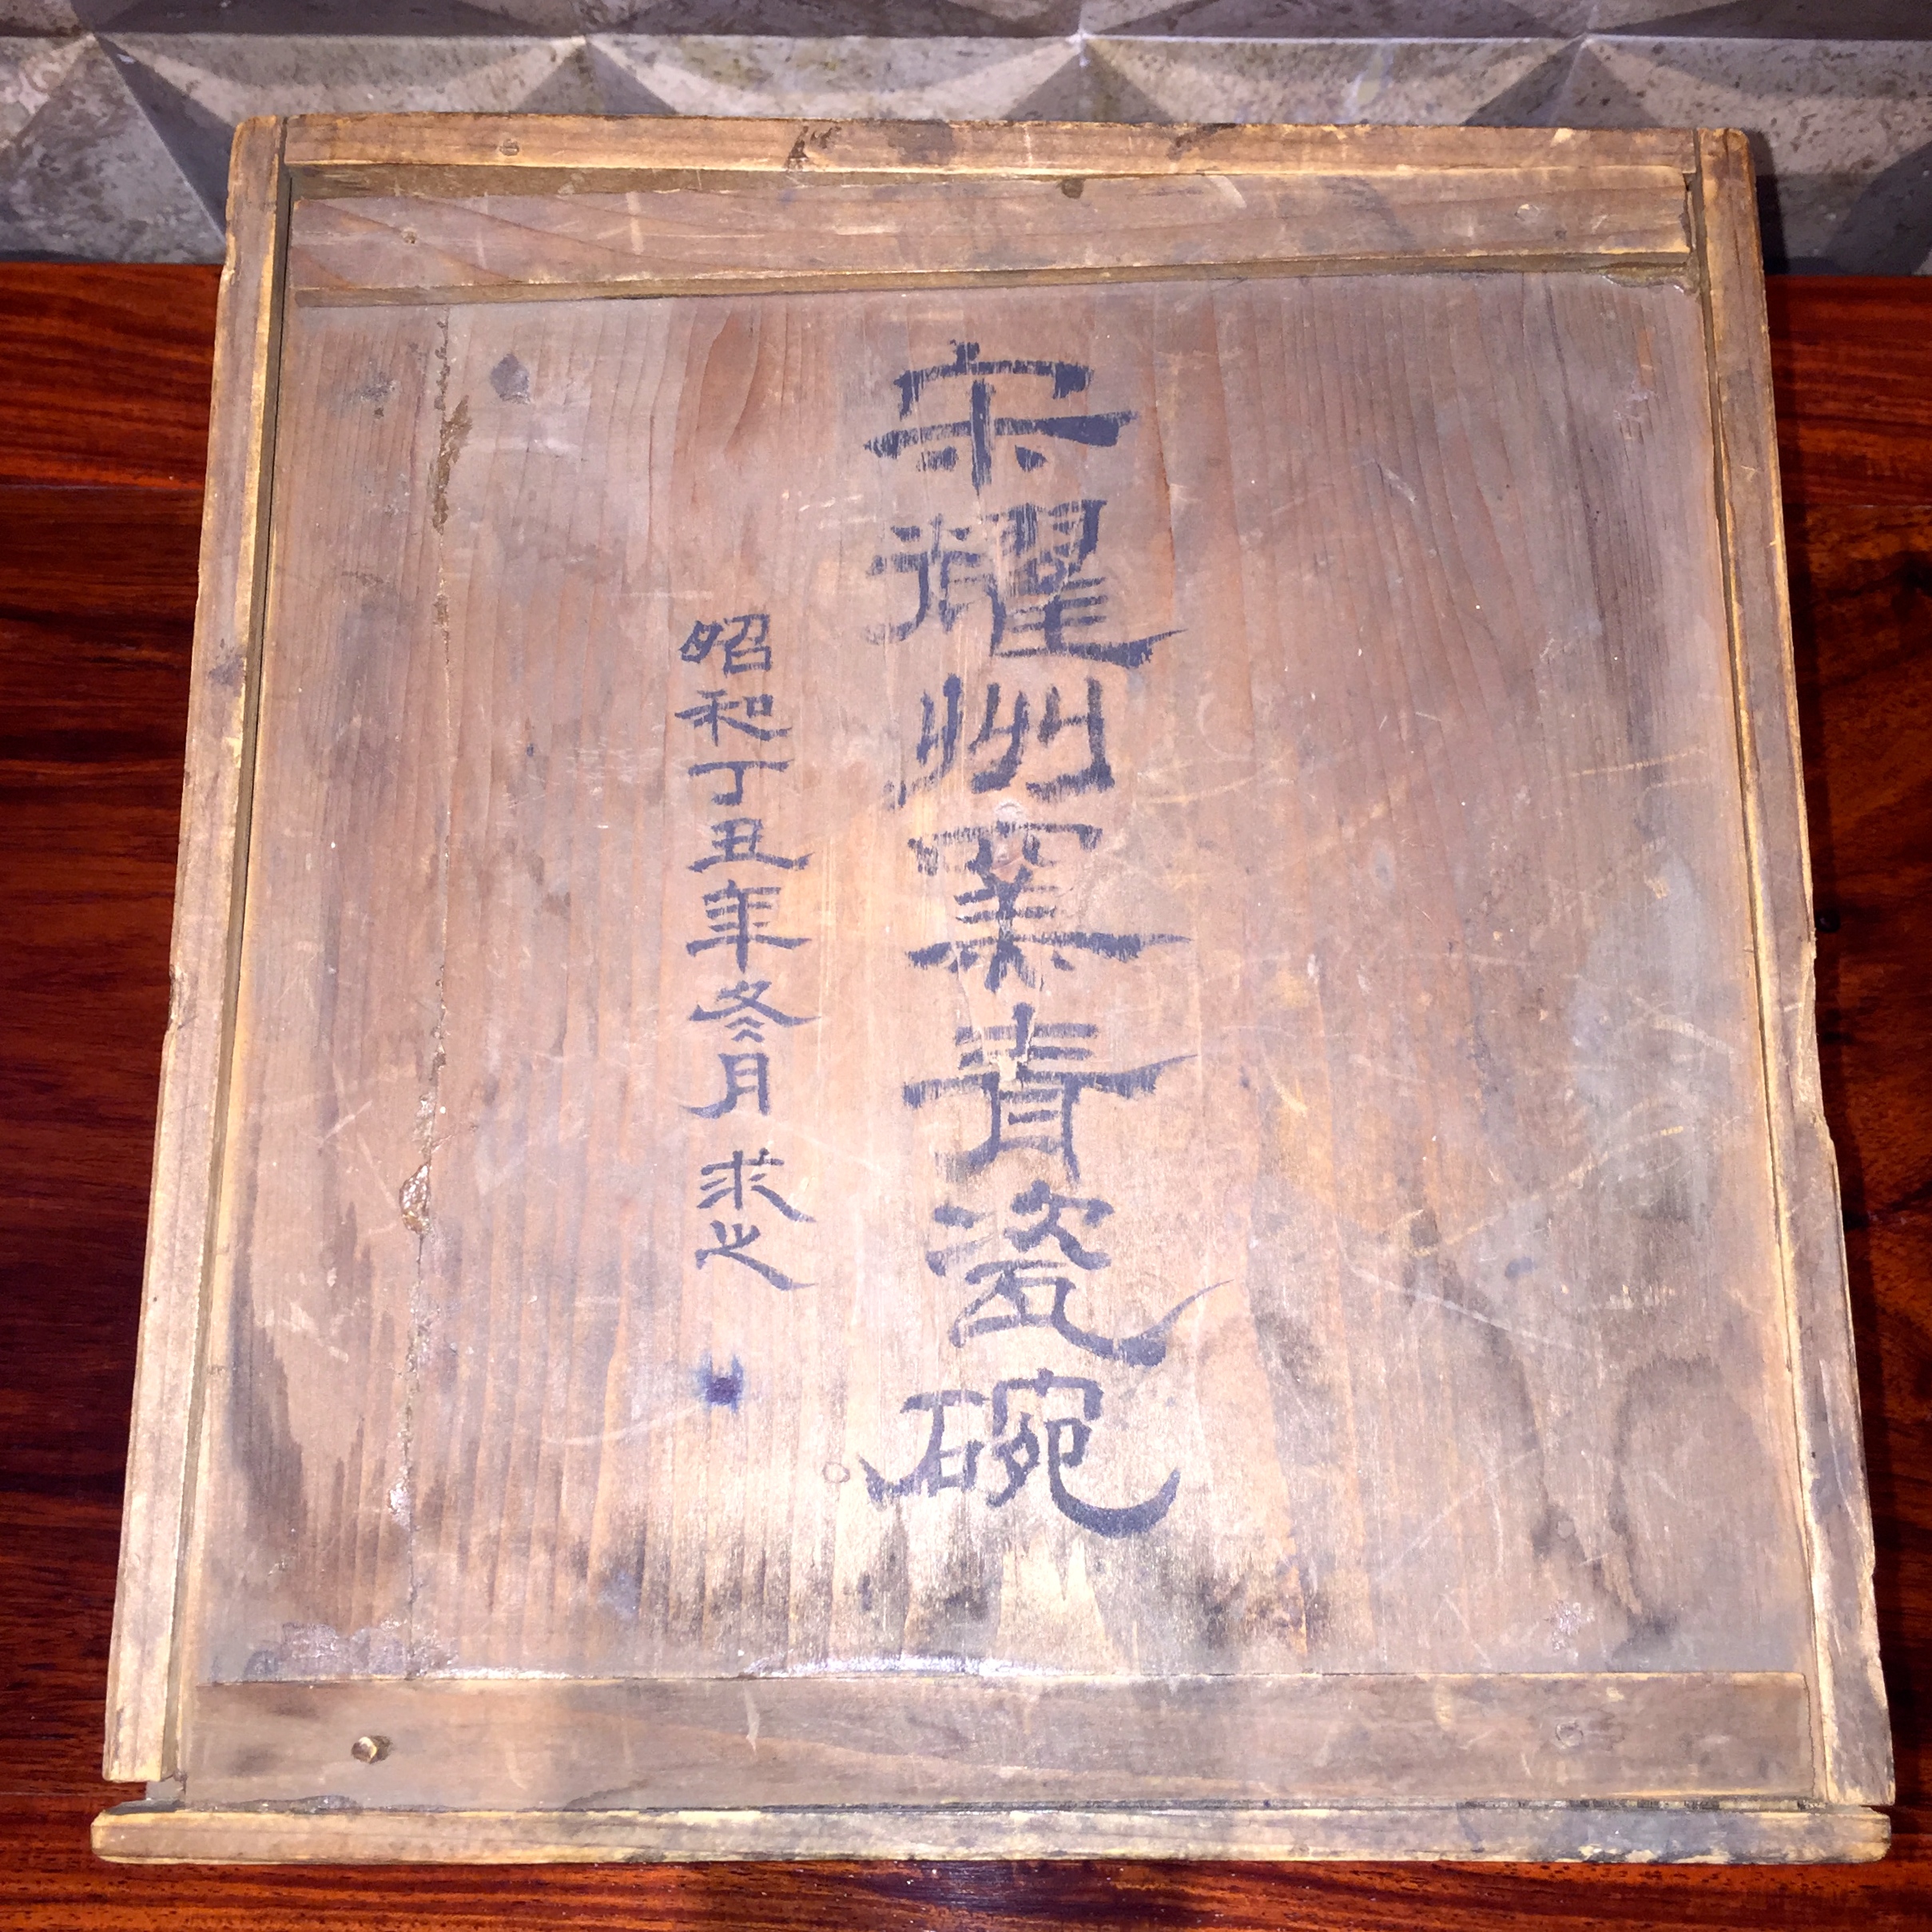 宋耀州窯青瓷碗
昭和丁丑年冬月 求之